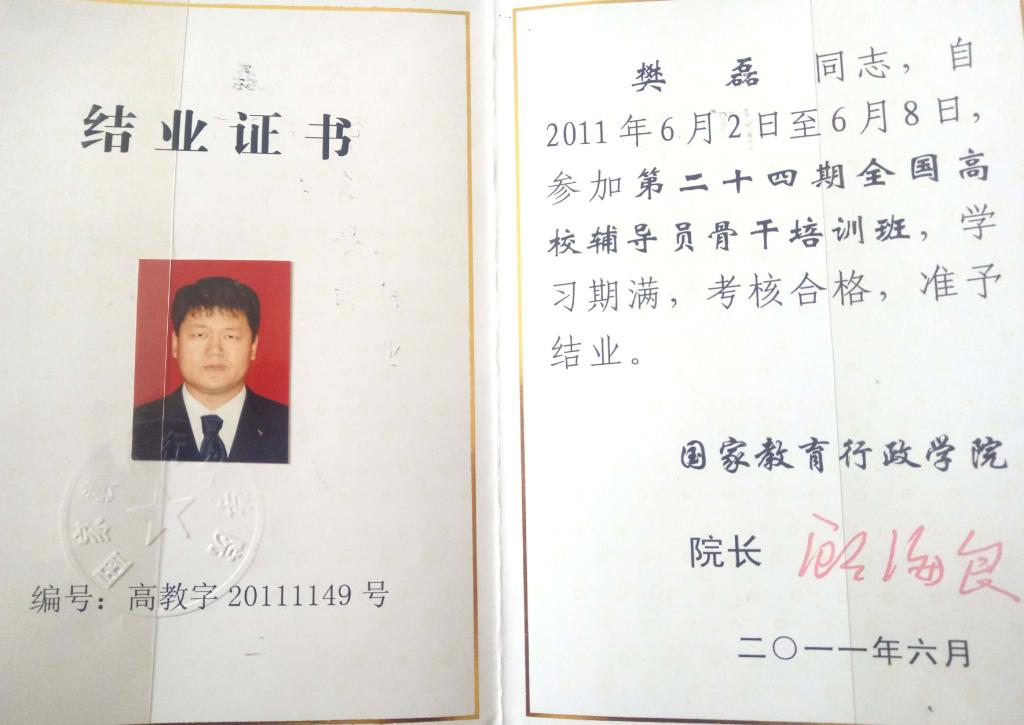 结业证书
编号：高教字 20111149 号
樊 磊 同志，自
2011年6月2日至6月8日，
参加第二十四期全国高
校辅导员骨干培训班，学
习期满，考核合格，准予
结业。
国家教育行政学院
院长 顾海良
二〇一一年六月